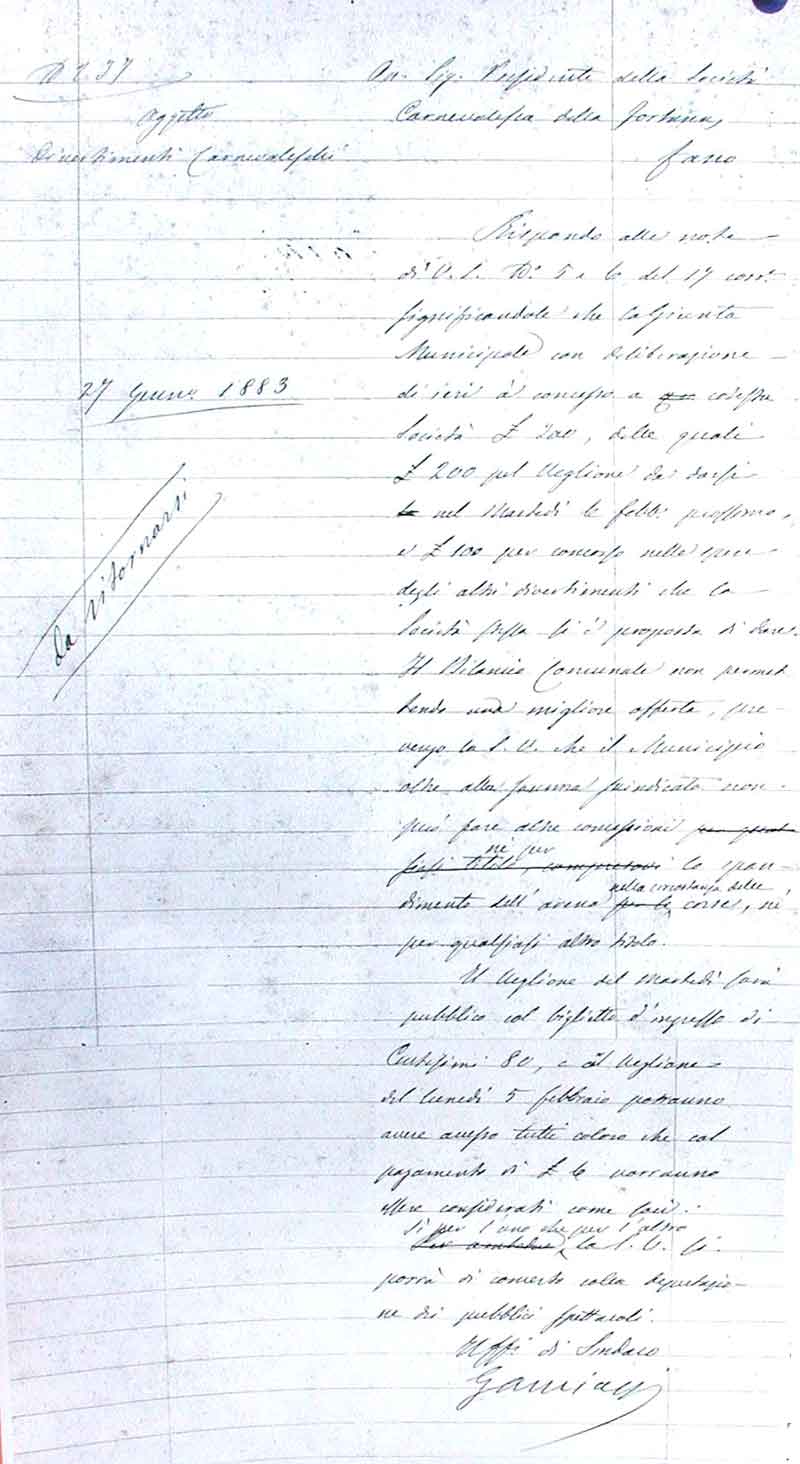 N° 237
Oggetto
Divertimenti Carnevaleschi
27 Genn° 1883
da ritornarsi
On. Sig. Presidente della Società
Carnevalesca della Fortuna,
Fano
Rispondo alle note
di V. S. N.i 5 e 6 del 17 corr.e
significandole che la Giunta
Municipale con deliberazione
di ieri à concesso a codesta
Società £ 300, delle quali
£ 200 pel Veglione da darsi
nel Martedì 6 febb.o prossimo,
e £ 100 per concorso nelle spese
degli altri divertimenti che la
Società stessa si è proposta di dare.
Il Bilancio Comunale non permet
tendo una migliore offerta, pre
vengo la S. V. che il Municipio
oltre alla somma suindicata non
può fare altre concessioni per qual
siasi titolo, compresovi nè per lo span-
dimento dell'arena per le nella circostanza delle corse, nè
per qualsiasi altro titolo.
Il Veglione del Martedì sarà
pubblico col biglietto d'ingresso di
Centesimi 80, e al Veglione
del lunedì 5 febbraio potranno
avere accesso tutti coloro che col
pagamento di £ 6 vorranno
essere considerati come soci.
Per ambedue Sì per l'uno che per l'altro la S. V. si
porrà di concerto colla deputazio-
ne dei pubblici spettacoli.
Uff.i di Sindaco